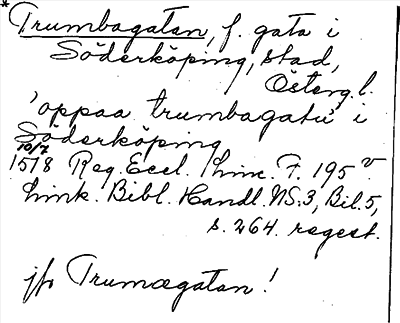 *Trumbagatan, f. gata i
Söderköping, stad,
Österg.l.
'oppaa trumbagatu' i
Söderköping
10/7
1518 Reg. Eccl. Linc. F. 195 v
Link. Bibl. Handl. NS. 3, Bil. 5,
s. 264. regest.
jfr Trumægatan!